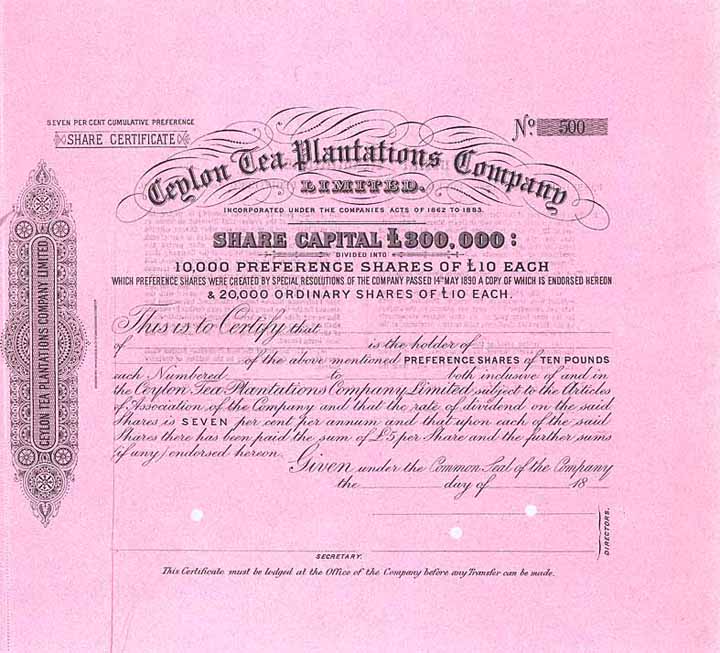 SEVEN PER CENT CUMULATIVE PREFERENCE
SHARE CERTIFICATE
No. 500
Ceylon Tea Plantations Company
LIMITED.
INCORPORATED UNDER THE COMPANIES ACTS OF 1862 TO 1883.
SHARE CAPITAL £300,000:
DIVIDED INTO
10,000 PREFERENCE SHARES OF £10 EACH
WHICH PREFERENCE SHARES WERE CREATED BY SPECIAL RESOLUTIONS OF THE COMPANY PASSED 14TH MAY 1890 A COPY OF WHICH IS ENDORSED HEREON
& 20,000 ORDINARY SHARES OF £10 EACH.
CEYLON TEA PLANTATIONS COMPANY LIMITED
This is to Certify that
of is the holder of
of the above mentioned PREFERENCE SHARES OF TEN POUNDS
each Numbered to both inclusive of and in
the Ceylon Tea Plantations Company Limited subject to the Articles
of Association of the Company and that the rate of dividend on the said
Shares is SEVEN per cent per annum and that upon each of the said
Shares there has been paid the sum of £5 per Share and the further sums
(if any) endorsed hereon.
Given under the Common Seal of the Company
the day of 18
DIRECTORS.
SECRETARY.
This Certificate must be lodged at the Office of the Company before any Transfer can be made.